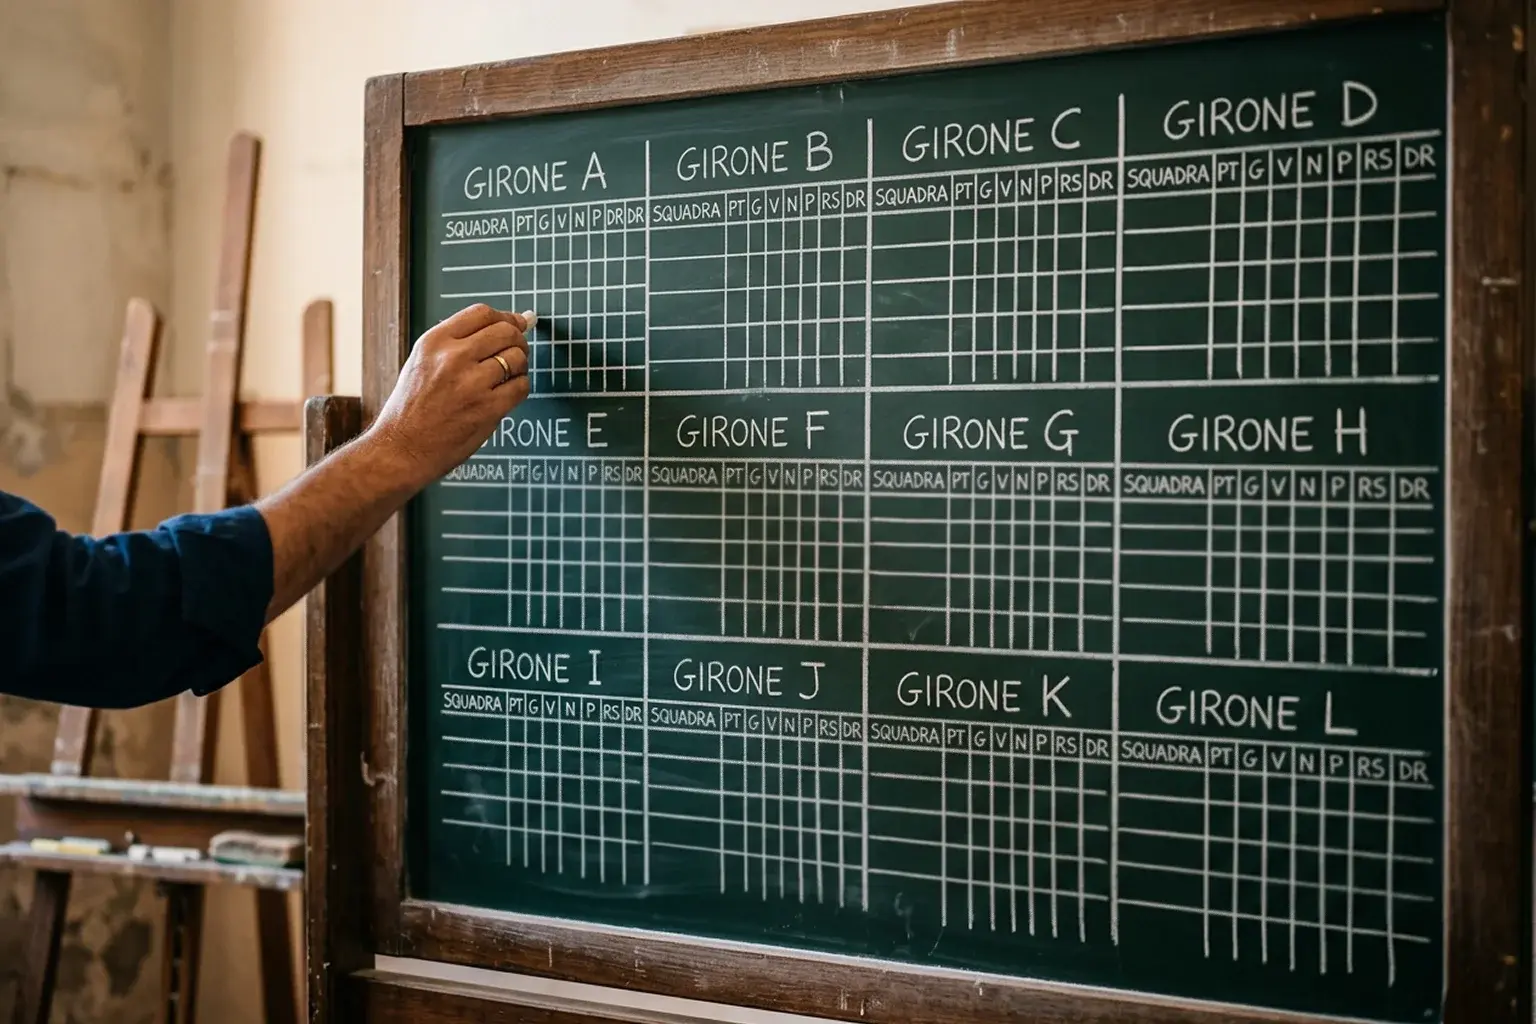 GIRONE A
SQUADRA PT G V N P DR DR
GIRONE B
SQUADRA PT G V N P RS DR
GIRONE C
SQUADRA PT G V N P RS DR
GIRONE D
SQUADRA PT G V N P RS DR
IRONE E
SQUADRA PT G V N P RS DR
GIRONE F
SQUADRA PT G V N P RS DR
GIRONE G
SQUADRA PT G V N P RS DR
GIRONE H
SQUADRA PT G V N P RS DR
GIRONE I
SQUADRA PT G V N P RS DR
GIRONE J
SQUADRA PT G V N P RS DR
GIRONE K
SQUADRA PT G V N P RS DR
GIRONE L
SQUADRA PT G V N P RS DR